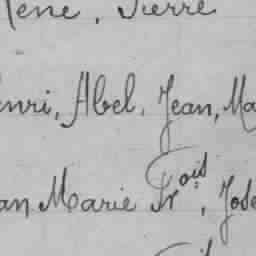 René, Pierre
enri, Abel, Jean, Ma
an Marie Frçois, Jose